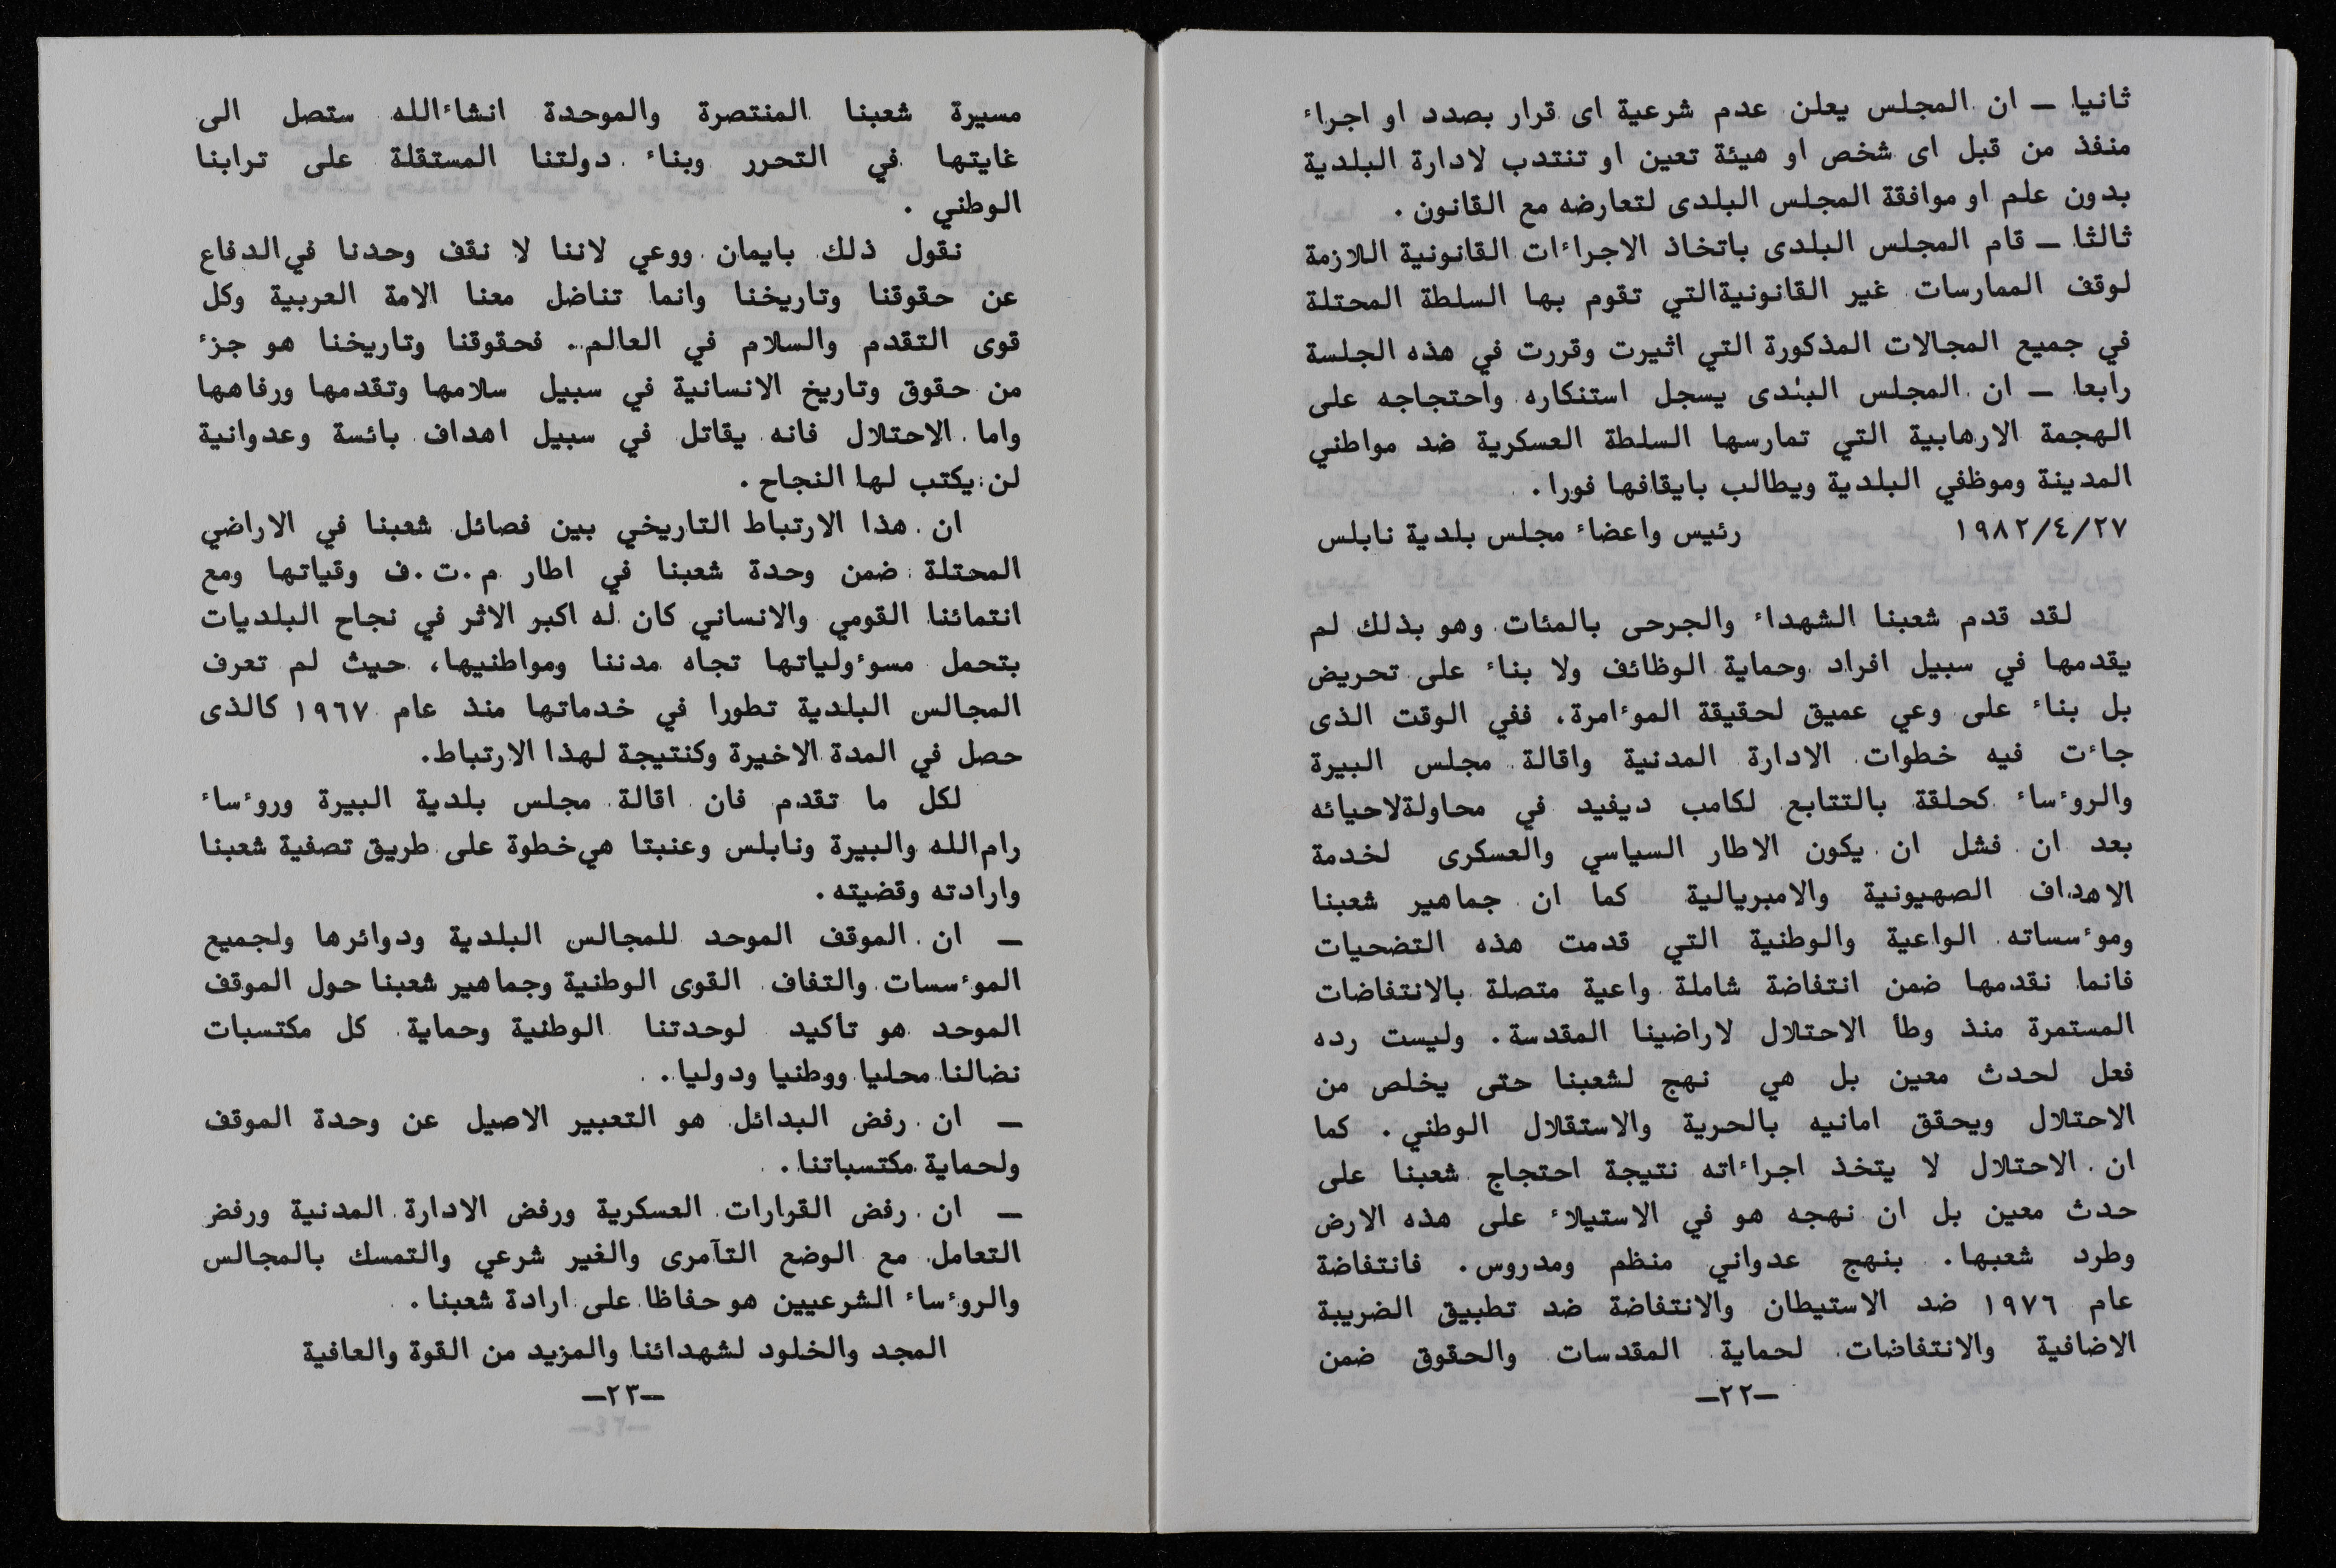 ثانيا ــ ان المجلس يعلن عدم شرعية اى قرار بصدد او اجراء
منفذ من قبل اى شخص او هيئة تعين او تنتدب لادارة البلدية
بدون علم او موافقة المجلس البلدى لتعارضه مع القانون .
ثالثا ــ قام المجلس البلدى باتخاذ الاجراءات القانونية اللازمة
لوقف الممارسات غير القانونيةالتي تقوم بها السلطة المحتلة
في جميع المجالات المذكورة التي اثيرت وقررت في هذه الجلسة
رابعا ــ ان المجلس البلدى يسجل استنكاره واحتجاجه على
الهجمة الارهابية التي تمارسها السلطة العسكرية ضد مواطني
المدينة وموظفي البلدية ويطالب بايقافها فورا .
٢٧/٤/١٩٨٢ رئيس واعضاء مجلس بلدية نابلس
لقد قدم شعبنا الشهداء والجرحى بالمئات وهو بذلك لم
يقدمها في سبيل افراد وحماية الوظائف ولا بناء على تحريض
بل بناء على وعي عميق لحقيقة الموءامرة، ففي الوقت الذى
جاءت فيه خطوات الادارة المدنية واقالة مجلس البيرة
والروءساء كحلقة بالتتابع لكامب ديفيد في محاولةلاحيائه
بعد ان فشل ان يكون الاطار السياسي والعسكرى لخدمة
الاهداف الصهيونية والامبريالية كما ان جماهير شعبنا
وموءسساته الواعية والوطنية التي قدمت هذه التضحيات
فانما نقدمها ضمن انتفاضة شاملة واعية متصلة بالانتفاضات
المستمرة منذ وطأ الاحتلال لاراضينا المقدسة . وليست رده
فعل لحدث معين بل هي نهج لشعبنا حتى يخلص من
الاحتلال ويحقق امانيه بالحرية والاستقلال الوطني . كما
ان الاحتلال لا يتخذ اجراءاته نتيجة احتجاج شعبنا على
حدث معين بل ان نهجه هو في الاستيلاء على هذه الارض
وطرد شعبها . بنهج عدواني منظم ومدروس . فانتفاضة
عام ١٩٧٦ ضد الاستيطان والانتفاضة ضد تطبيق الضريبة
الاضافية والانتفاضات لحماية المقدسات والحقوق ضمن
ــ٢٢ــ
مسيرة شعبنا المنتصرة والموحدة انشاءالله ستصل الى
غايتها في التحرر وبناء دولتنا المستقلة على ترابنا
الوطني .
نقول ذلك بايمان ووعي لاننا لا نقف وحدنا في الدفاع
عن حقوقنا وتاريخنا وانما تناضل معنا الامة العربية وكل
قوى التقدم والسلام في العالم.. فحقوقنا وتاريخنا هو جزء
من حقوق وتاريخ الانسانية في سبيل سلامها وتقدمها ورفاهها
واما الاحتلال فانه يقاتل في سبيل اهداف بائسة وعدوانية
لن يكتب لها النجاح .
ان هذا الارتباط التاريخي بين فصائل شعبنا في الاراضي
المحتلة ضمن وحدة شعبنا في اطار م.ت.ف وقياتها ومع
انتمائنا القومي والانساني كان له اكبر الاثر في نجاح البلديات
بتحمل مسوءولياتها تجاه مدننا ومواطنيها، حيث لم تعرف
المجالس البلدية تطورا في خدماتها منذ عام ١٩٦٧ كالذى
حصل في المدة الاخيرة وكنتيجة لهذا الارتباط.
لكل ما تقدم فان اقالة مجلس بلدية البيرة وروءساء
رام الله والبيرة ونابلس وعنبتا هي خطوة على طريق تصفية شعبنا
وارادته وقضيته .
ــ ان الموقف الموحد للمجالس البلدية ودوائرها ولجميع
الموءسسات والتفاف القوى الوطنية وجماهير شعبنا حول الموقف
الموحد هو تأكيد لوحدتنا الوطنية وحماية كل مكتسبات
نضالنا محليا ووطنيا ودوليا .
ــ ان رفض البدائل هو التعبير الاصيل عن وحدة الموقف
ولحماية مكتسباتنا .
ــ ان رفض القرارات العسكرية ورفض الادارة المدنية ورفض
التعامل مع الوضع التآمرى والغير شرعي والتمسك بالمجالس
والروءساء الشرعيين هو حفاظا على ارادة شعبنا .
المجد والخلود لشهدائنا والمزيد من القوة والعافية
ــ٢٣ــ